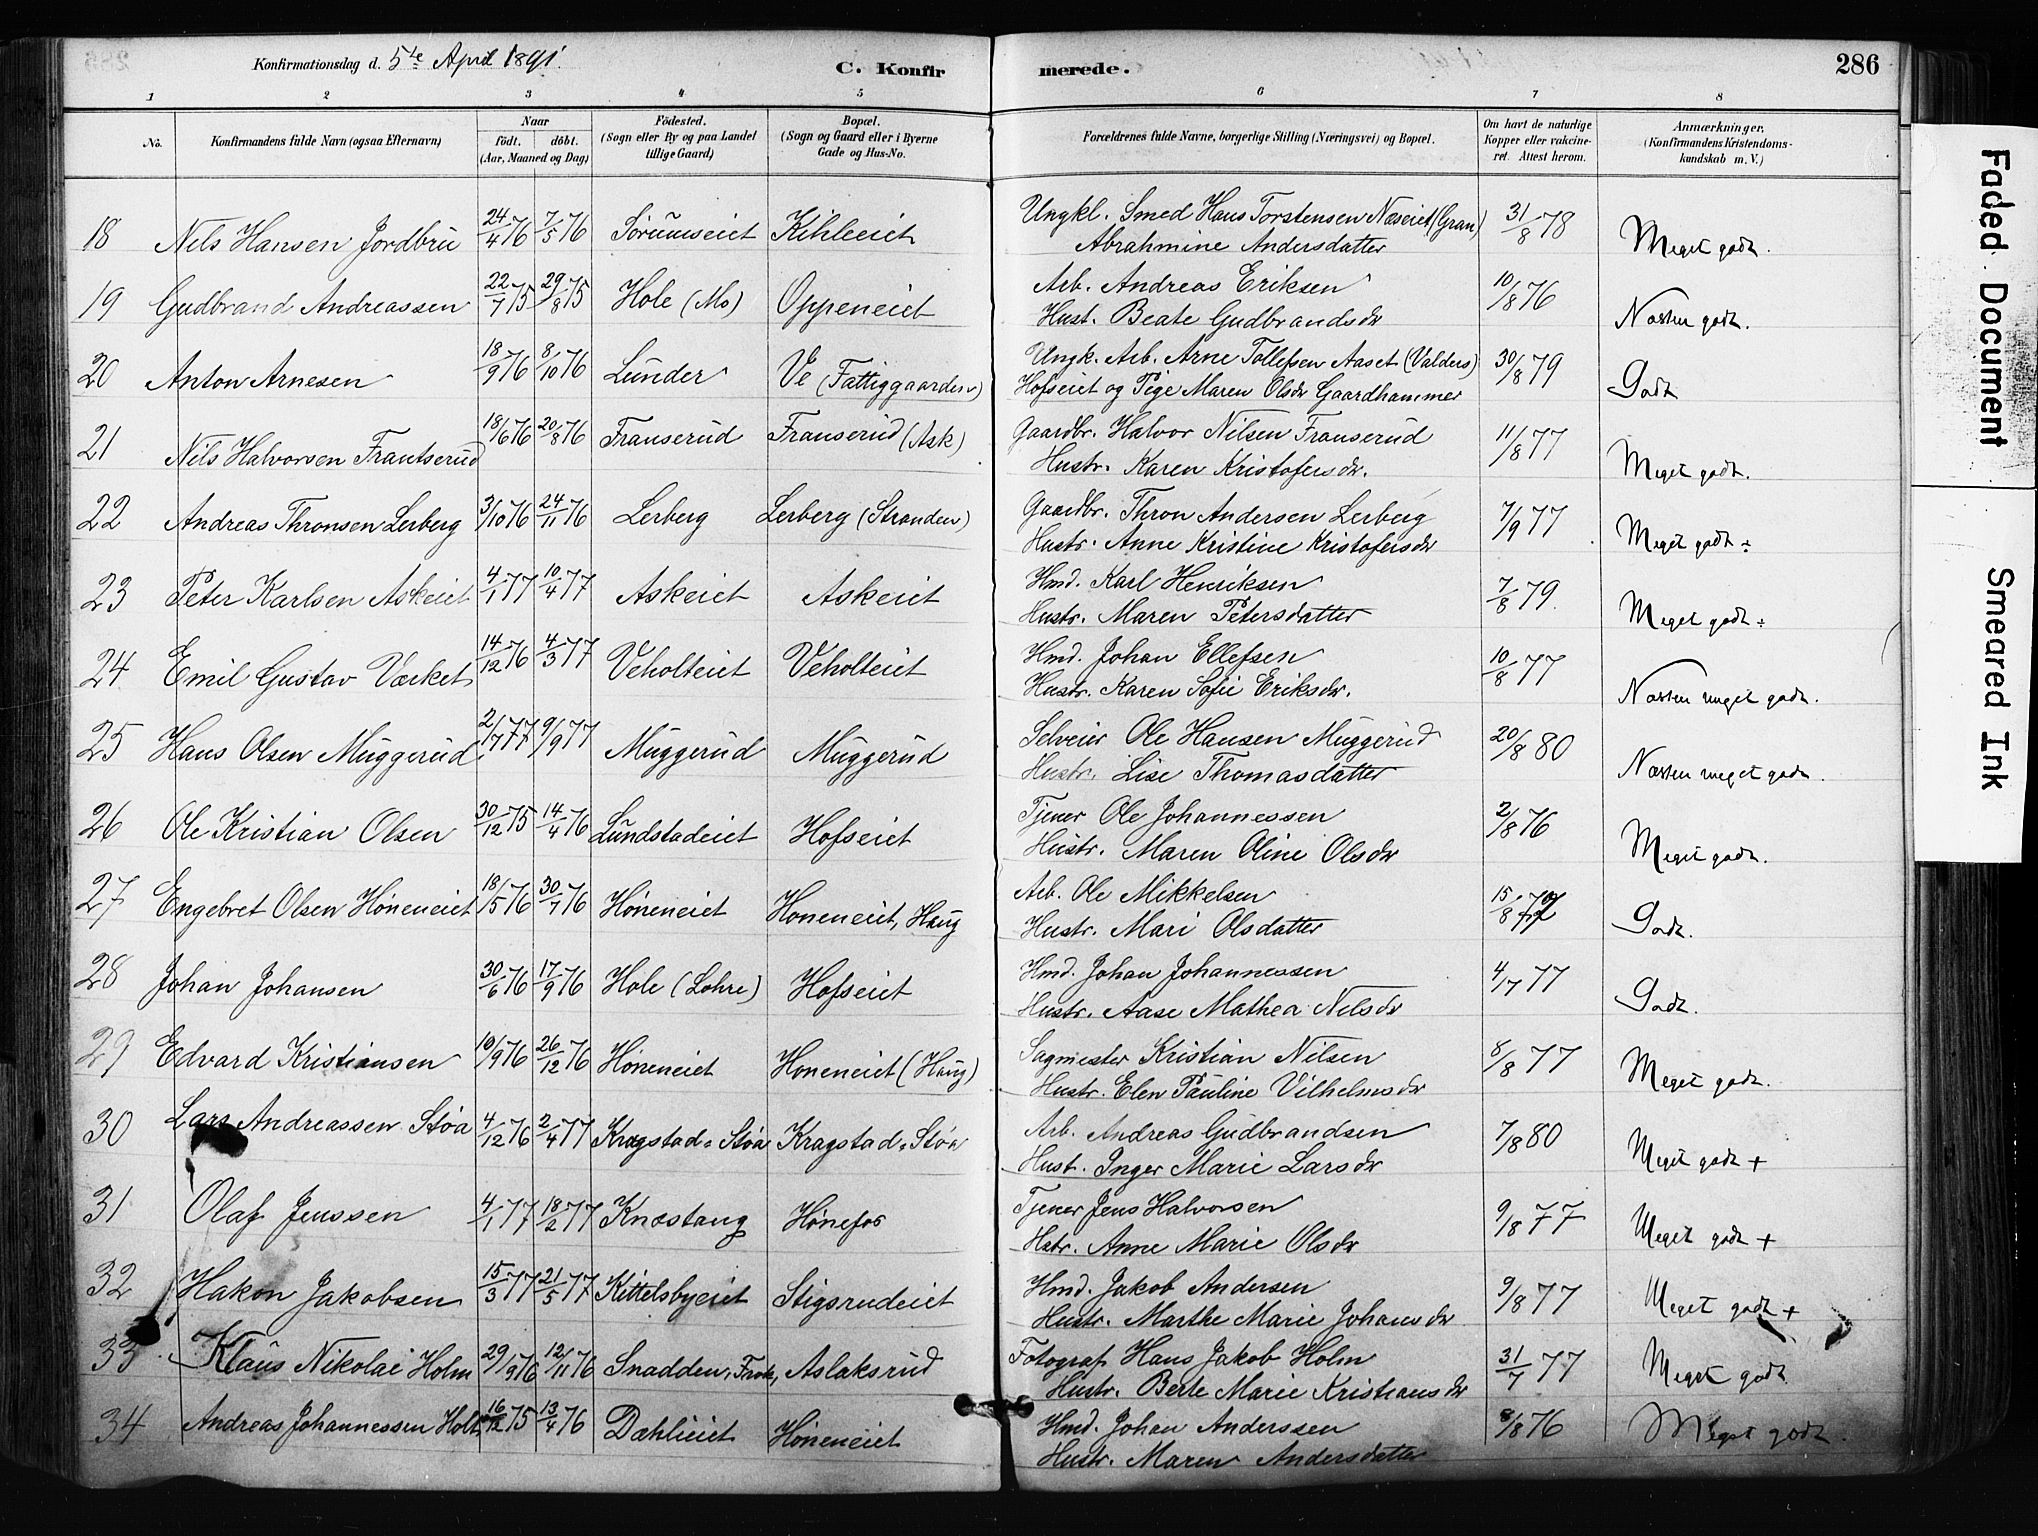 Konfirmationsdag d. 5te April 1891.
C. Konfirmerede.
286
1 2 3 4 5 6 7 8
No.
Konfirmandens fulde Navn (ogsaa Efternavn)
Naar
født. døbt.
(Aar, Maaned og Dag)
Fødested.
(Sogn eller By og paa Landet
tillige Gaard)
Bopæl.
(Sogn og Gaard eller i Byerne
Gade og Hus-No.
Forældrenes fulde Navne, borgerlige Stilling (Næringsvei) og Bopæl.
Om havt de naturlige
Kopper eller vakcine-
ret. Attest herom.
Anmærkninger.
(Konfirmandens Kristendoms-
kundskab m. V.)
18 Nils Hansen Jordbru 24/4 76 7/5 76 Sørumseiet Kihleeiet Ungkl. Smed Hans Torstensen Næseiet (Gran) 31/8 78 Meget godt.
Abrahmine Andersdatter
19 Gudbrand Andreassen 22/7 75 29/8 75 Hole (Mo) Oppeneiet Arb. Andreas Eriksen 10/8 76 Næsten godt.
Hust. Beate Gudbrandsdr
20 Anton Arnesen 18/9 76 8/10 76 Lunder Ve (Fattiggaarden) Ungk. Arb. Arne Tollefsen Aaset (Valders) 30/8 79 Godt
Hofseiet og Pige Maren Olsdr Gaardhammer
21 Nils Halvorsen Frantserud 18/6 76 20/8 76 Franserud Franserud (Ask) Gaardbr. Halvor Nilsen Franserud 11/8 77 Meget godt.
Hustr. Karen Kristofersdr.
22 Andreas Thronsen Lerberg 3/10 76 24/11 76 Lerberg Lerberg (Stranden) Gaardbr. Thron Andersen Lerberg 7/9 77 Meget godt ÷
Hustr. Anne Kristine Kristofersdr
23 Peter Karlsen Askeiet 4/1 77 10/4 77 Askeiet Askeiet Hmd. Karl Henriksen 7/8 79. Meget godt ÷
Hustr. Maren Petersdatter
24 Emil Gustav Værket 14/12 76 4/3 77 Veholteiet Veholteiet Hmd. Johan Ellefsen 10/8 77 Næsten meget godt.
Hustr. Karen Sofie Eriksdr.
25 Hans Olsen Muggerud 2/7 77 9/9 77 Muggerud Muggerud Selveier Ole Hansen Muggerud 20/8 80 Næsten meget godt.
Hustr. Lise Thomasdatter
26 Ole Kristian Olsen 30/12 75 14/4 76 Lundstadeiet Hofseiet Tjener Ole Johannessen 2/8 76 Meget godt.
Hustr. Maren Oline Olsdr
27 Engebret Olsen Høneneiet 18/5 76 30/7 76 Høneneiet Honeneiet, Haug Arb. Ole Mikkelsen 15/8 Godt.
Hustr. Mari Olsdatter
28 Johan Johansen 30/6 76 17/9 76 Hole (Lohre) Hofseiet Hmd. Johan Johannessen 4/7 77 Godt.
Hustr. Aase Mathea Nilsdr
29 Edvard Kristiansen 10/9 76 26/12 76 Høneneiet Honeneiet (Haug) Sagmester Kristian Nilsen 8/8 77 Meget godt.
Hustr. Elen Pauline Vilhelmsdr
30 Lars Andreassen Støa 4/12 76 2/4 77 Kragstad-Støa Kragstad-Støa Arb. Andreas Gudbrandsen 7/8 80 Meget godt +
Hust. Inger Marie Larsdr
31 Olaf Jenssen 4/1 77 18/2 77 Knæstang Hønefos Tjener Jens Halvorsen 9/8 77 Meget godt +
Hstr. Anne Marie Olsdr
32 Hakon Jakobsen 15/3 77 21/5 77 Kittelsbyeiet Stigsrudeiet Hmd. Jakob Andersen 9/8 77 Meget godt +
Hustr. Marthe Marie Johansdr
33 Klaus Nikolai Holm 29/9 76 12/11 76 Snadden, Aslaksrud Fotograf Hans Jakob Holm 31/7 77 Meget godt
Hustr. Berte Marie Kristiansdr
34 Andreas Johannessen Holt 16/12 75 13/4 76 Dæhlieiet Høneneiet Hmd. Johan Anderssen 8/8 76 Meget godt.
Hustr. Maren Andersdatter
Faded Document
Smeared Ink